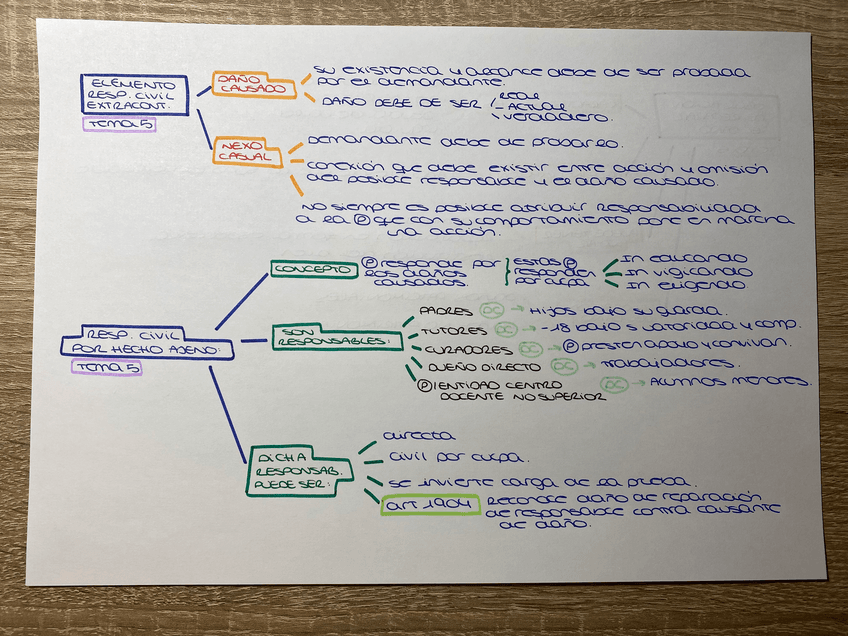 ELEMENTO
RESP. CIVIL
EXTRACONT.
TEMA 5
DAÑO
CAUSADO
su existencia y alcance debe de ser probada
por el demandante.
DAÑO DEBE DE SER
real
- ACTUAL
verdadero.
NEXO
CASUAL
Demandante debe de probarlo.
conexión que debe existir entre acción y omisión
del posible responsable y el daño causado.
No siempre es posible atribuir responsabilidad
a la P que con su comportamiento pone en marcha
una acción.
RESP. CIVIL
POR HECHO AJENO:
TEMA 5
CONCEPTO
P responde por
los daños
causados.
ESTAS P
responden
por culpa
In educando
In vigilando
In eligendo
SON
RESPONSABLES:
PADRES DC → Hijos bajo su guarda.
TUTORES DC → -18 bajo s autoridad y comp.
CURADORES DC → P presten apoyo y convivan.
DUEÑO DIRECTO DC → trabajadores.
P IENTIDAD CENTRO DC → Alumnos menores.
DOCENTE NO SUPERIOR
DICHA
RESPONSAB.
PUEDE SER:
directa
civil por culpa.
se invierte carga de la prueba.
art 1904 Reconoce daño de reparación
de responsable contra causante
de daño.